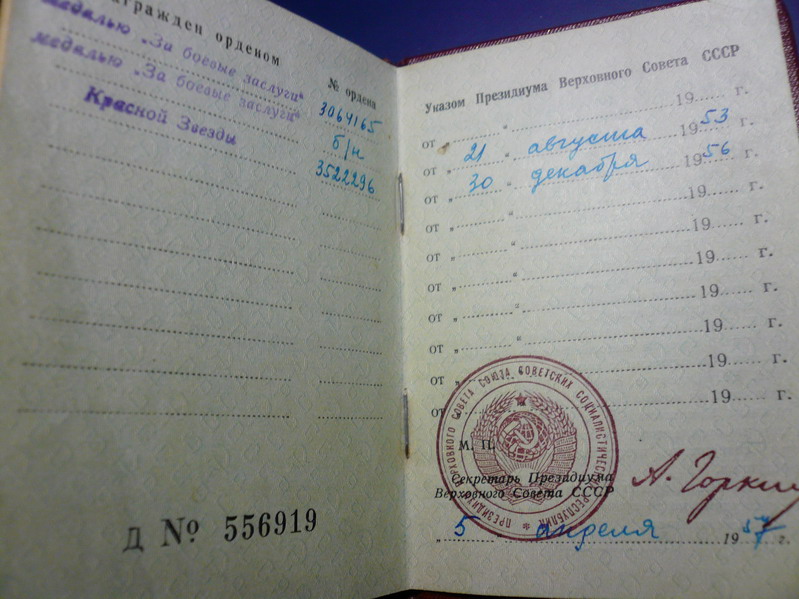 агражден орденом
№ ордена
медалью „За боевые заслуги“ 3064165
медалью „За боевые заслуги“ б/н
Красной Звезды 3522296
Д № 556919
Указом Президиума Верховного Совета СССР
от „ “ 19 г.
от „ 21 “ августа 1953 г.
от „ 30 “ декабря 1956 г.
от „ “ 19 г.
от „ “ 19 г.
от „ “ 19 г.
от „ “ 19 г.
от „ “ 19 г.
от „ “ 19 г.
от „ “ 19 г.
ПРЕЗИДИУМ ВЕРХОВНОГО СОВЕТА СОЮЗА СОВЕТСКИХ СОЦИАЛИСТИЧЕСКИХ РЕСПУБЛИК
М. П.
Секретарь Президиума
Верховного Совета СССР
А. Горкин
„ 5 “ апреля 1957 г.